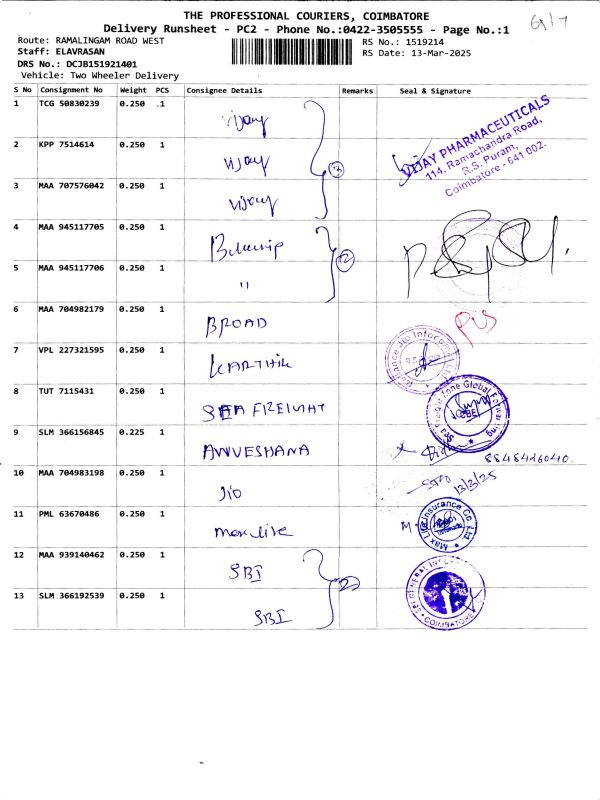 THE PROFESSIONAL COURIERS, COIMBATORE
Delivery Runsheet - PC2 - Phone No.:0422-3505555 - Page No.:1
Route: RAMALINGAM ROAD WEST
RS No.: 1519214
Staff: ELAVRASAN
RS Date: 13-Mar-2025
DRS No.: DCJB151921401
Vehicle: Two Wheeler Delivery
S No Consignment No Weight PCS Consignee Details Remarks Seal & Signature
1 TCG 50830239 0.250 1 Vijay
2 KPP 7514614 0.250 1 Vijay
3 MAA 707576042 0.250 1 Vijay
VIJAY PHARMACEUTICALS
114, Ramachandra Road,
R.S. Puram,
Coimbatore - 641 002.
4 MAA 945117705 0.250 1
5 MAA 945117706 0.250 1 "
6 MAA 704982179 0.250 1 BROAD
7 VPL 227321595 0.250 1 KARTHIK
Reliance Jio Infocomm
8 TUT 7115431 0.250 1 SEA FREIGHT
9 SLM 366156845 0.225 1 ANVESHANA
8848426040.
10 MAA 704983198 0.250 1 JIO
13/3/25
11 PML 63670486 0.250 1 max life
Max Life Insurance Co. Ltd.
12 MAA 939140462 0.250 1 SBI
13 SLM 366192539 0.250 1 SBI
SBI GENERAL
COIMBATORE